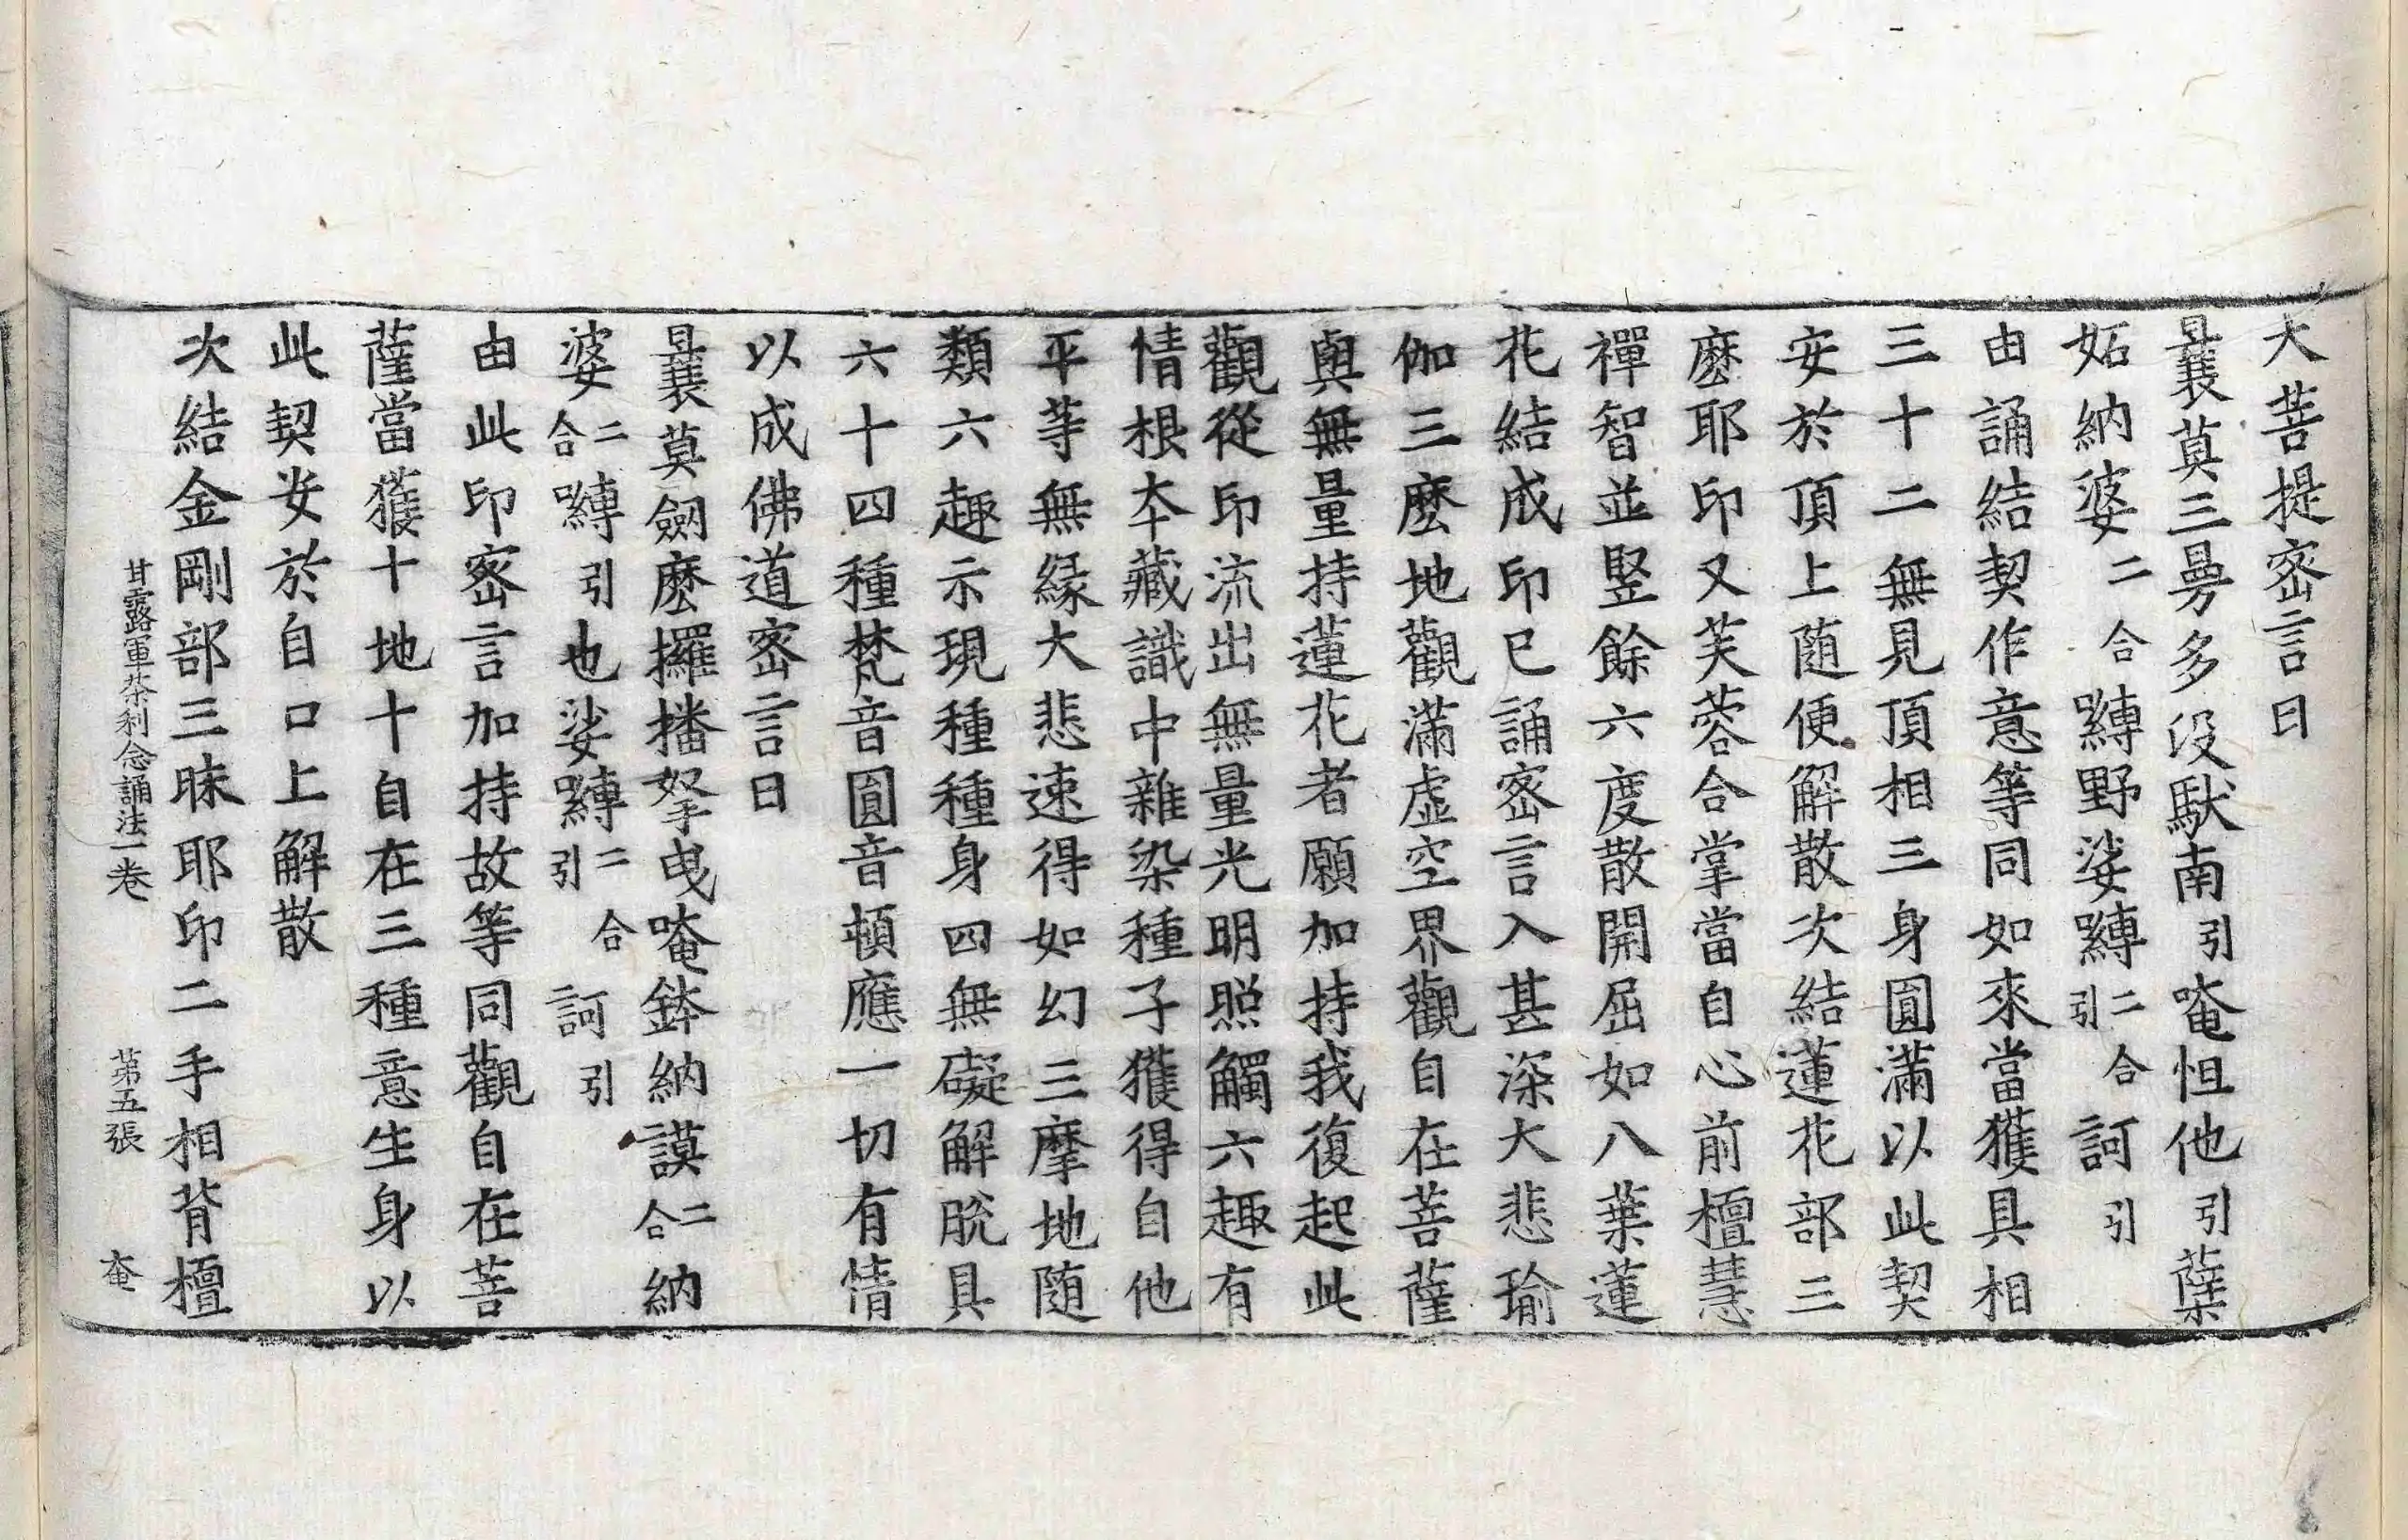 大菩提密言曰
曩莫三曼多没馱南引唵怛他引蘖
妬納婆二合嚩野娑嚩二合引訶引
由誦結契作意等同如來當獲具相
三十二無見頂相三身圓滿以此契
安於頂上随便解散次結蓮花部三
麽耶印又芙蓉合掌當自心前檀慧
禪智並竪餘六度散開屈如八葉蓮
花結成印已誦密言入甚深大悲瑜
伽三麽地觀滿虛空界觀自在菩薩
與無量持蓮花者願加持我復起此
觀從印流出無量光明照觸六趣有
情根本藏識中雜染種子獲得自他
平等無緣大悲速得如幻三摩地随
類六趣示現種種身四無礙解脫具
六十四種梵音圓音頓應一切有情
以成佛道密言曰
曩莫劒麽攞播拏曳唵鉢納謨二合納
婆二合嚩引也娑嚩二合引訶引
由此印密言加持故等同觀自在菩
薩當獲十地十自在三種意生身以
此契安於自口上解散
次結金剛部三昧耶印二手相背檀
甘露軍荼利念誦法一卷 第五張 奄